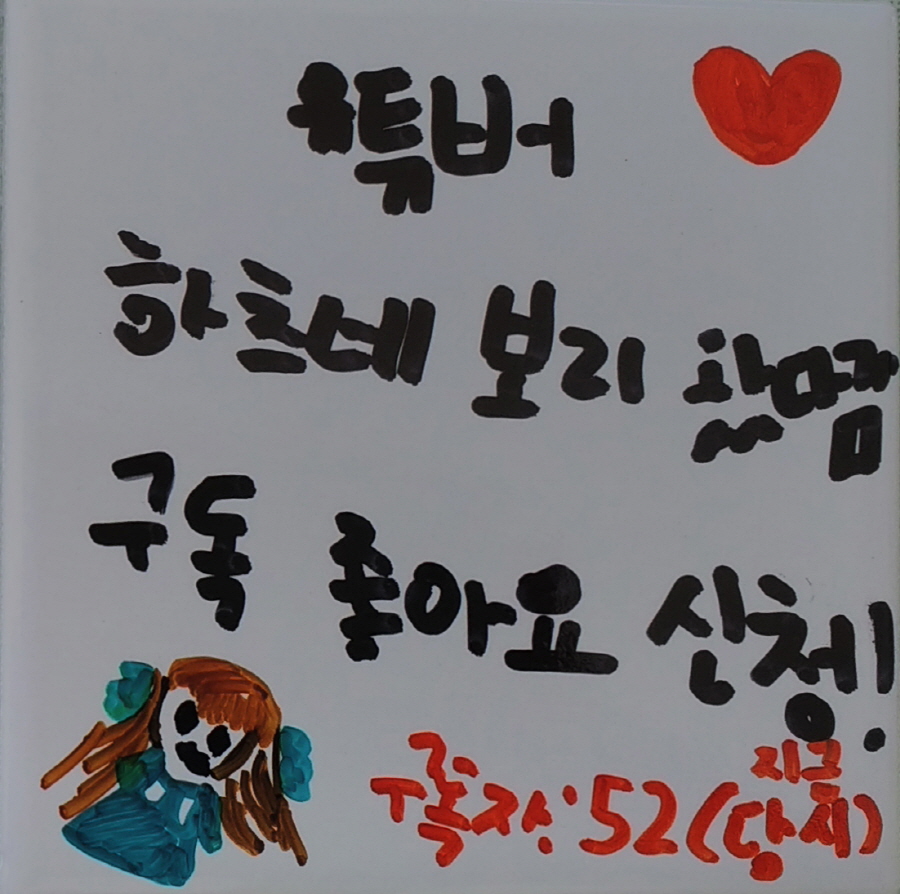 유튜버
하츠네 보리
구독 좋아요 신청!
지금
구독자: 52(당시)